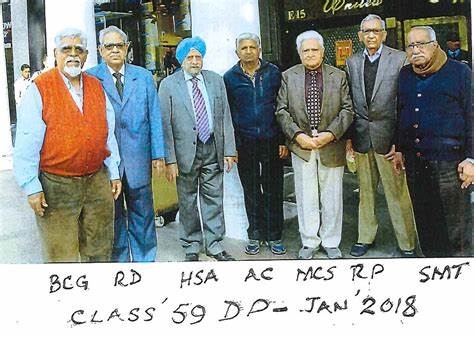 E 15
BCG RD HSA AC MCS RP SMT
CLASS '59 DD - JAN '2018